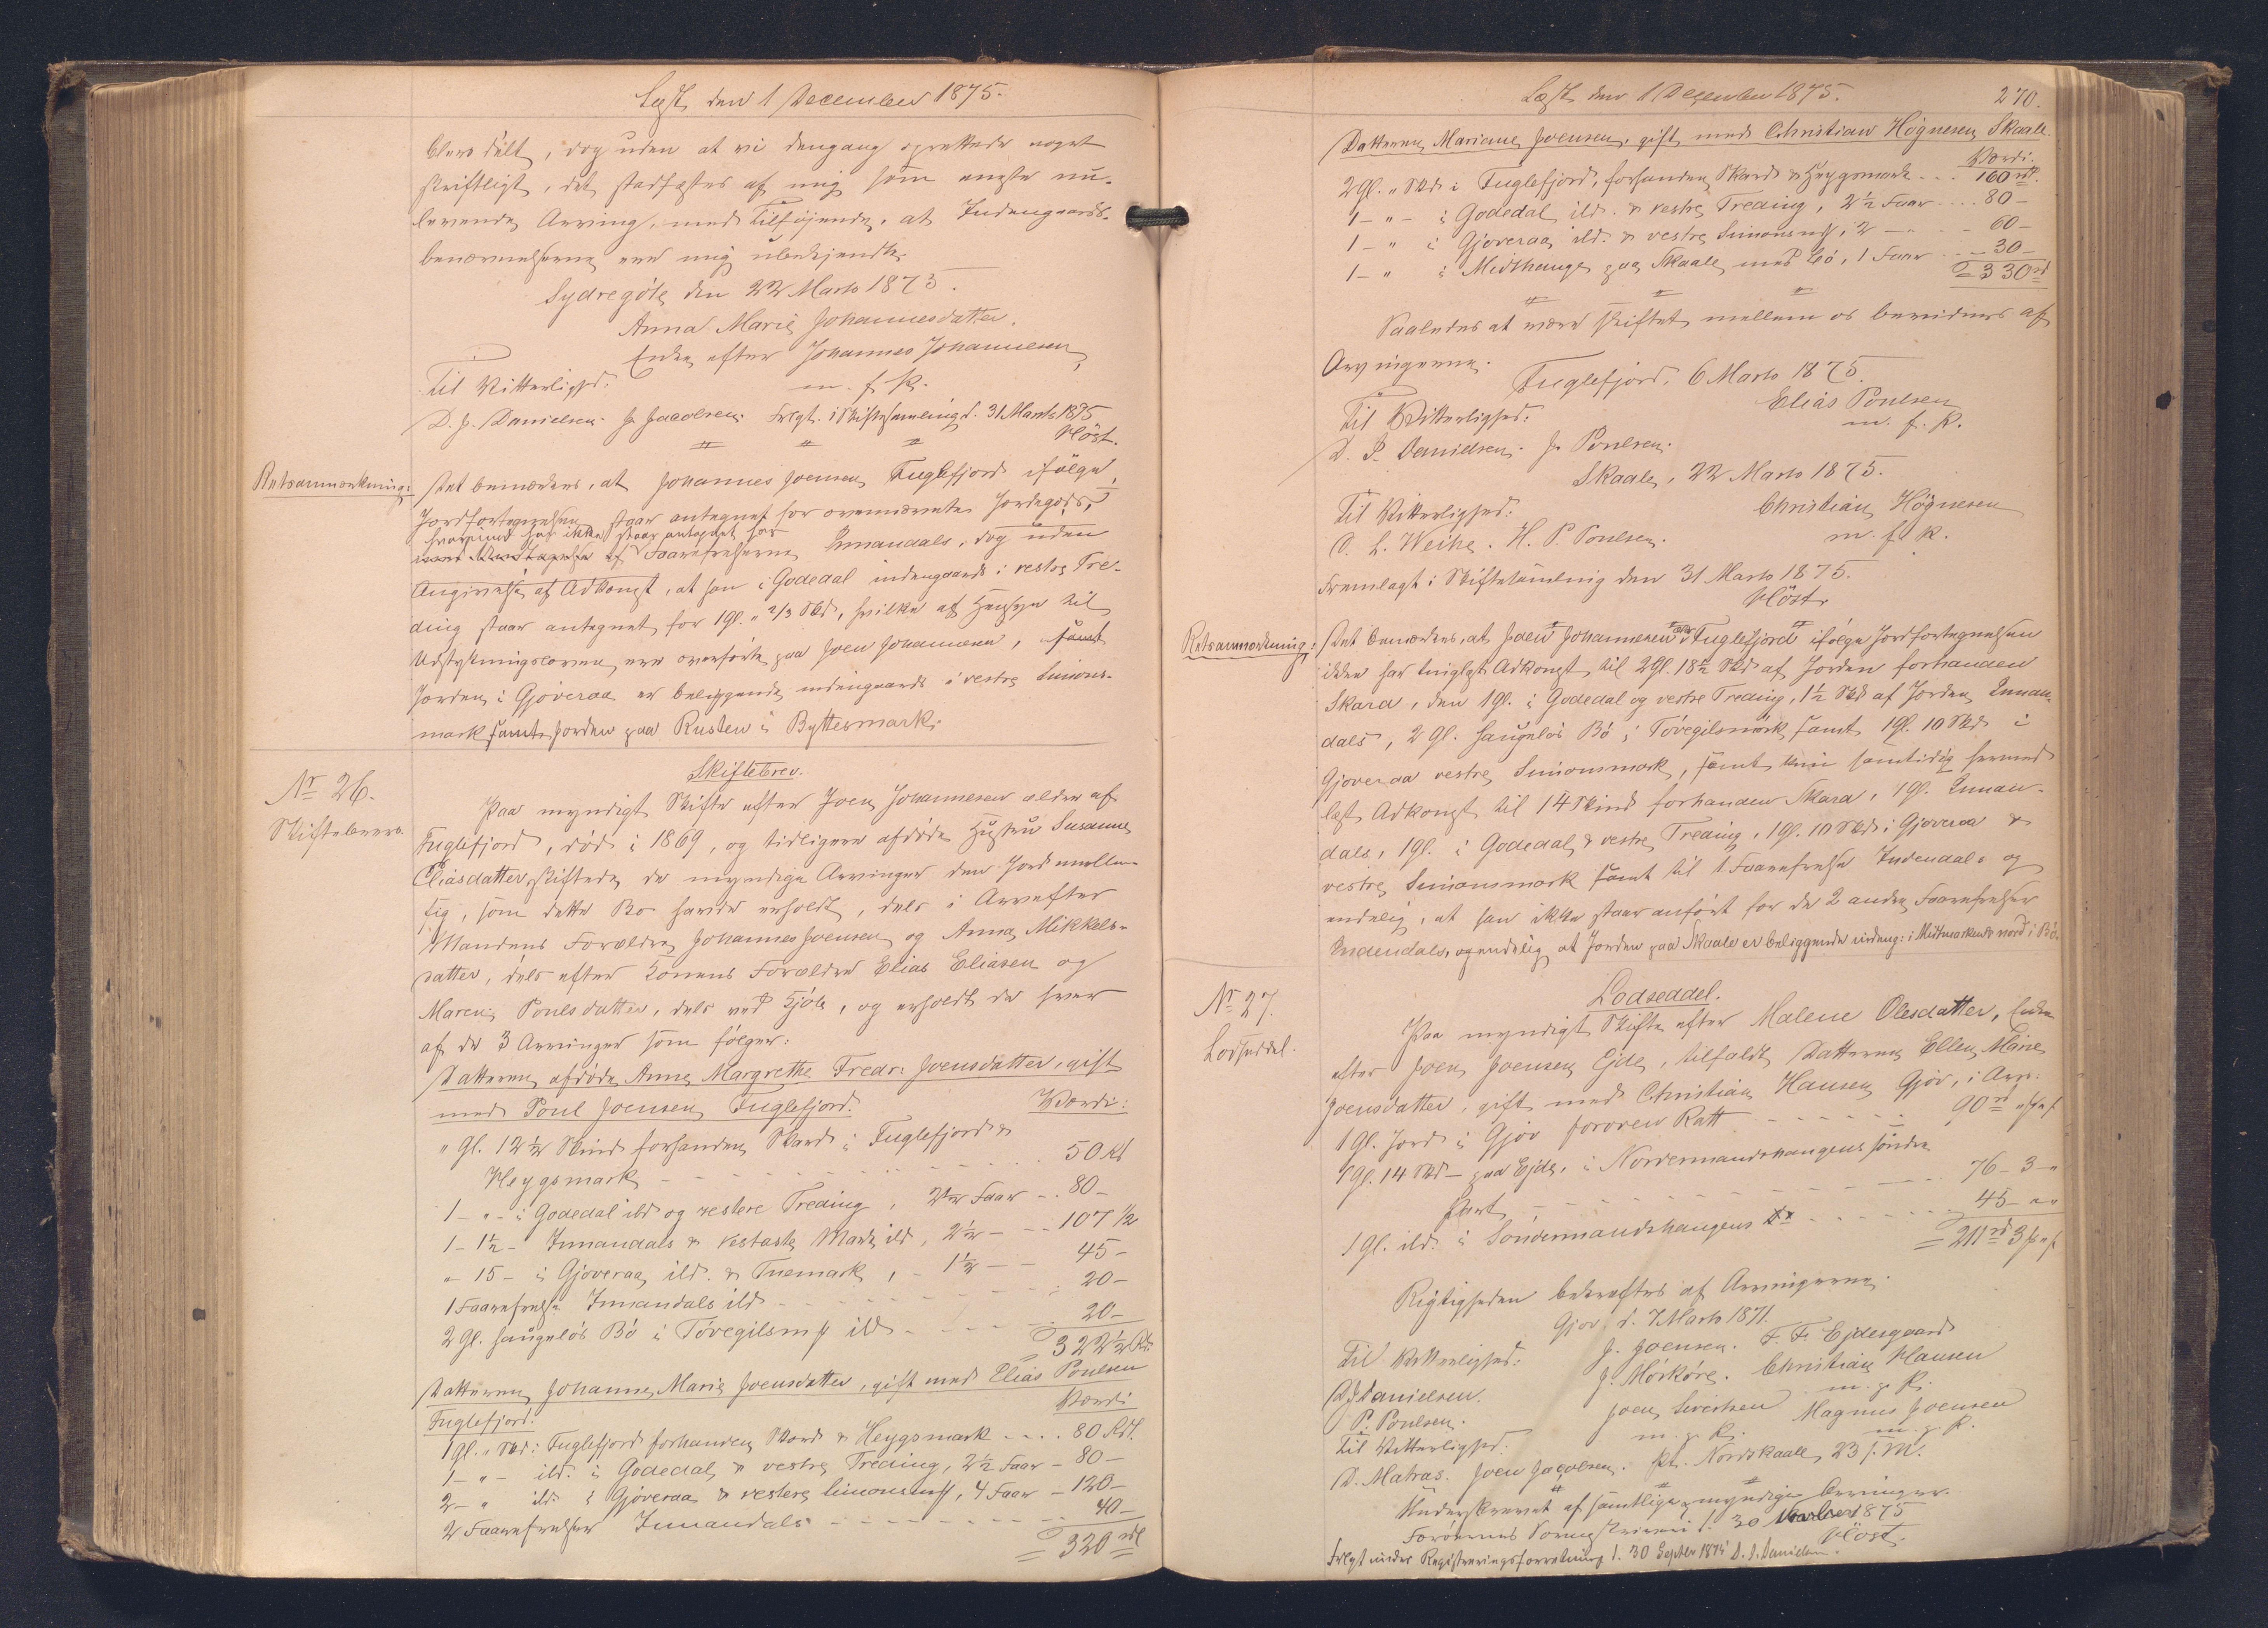 Læst den 1 December 1875.
blevs delt, dog uden at vi dengang oprettede noget
skriftligt, det stadfæstes af mig som eneste nu-
levende Arving, med Tilføjende, at Indengaards-
benævnelserne ere mig ubekjendte.
Sydregøte den 22 Marts 1875.
Anna Marie Johannesdatter,
Enke efter Johannes Johannesen,
Til Vitterlighed: m. f. P.
D. J. Danielsen. J. Jacobsen. Frlgt. i Skiftesamling d. 31 Marts 1875
Høst.
Retsanmærkning: Det bemærkes, at Johannes Joensen Fuglefjord ifølge
Jordfortegnelsen staar antegnet for ovennævnte Jordegods,
hvorimod han ikke staar antegnet for
Faarefræserne Innandals, dog uden
Angivelse af Adkomst, at han i Godedal indengaards i vestre Tre-
ding staar antegnet for 1 gl. " 2/3 Skd, hvilke af Hensyn til
Udstykningsloven ere overførte paa Joen Johannesen, samt
Jorden i Gjøveraa er beliggende indengaards i vestre Simons-
mark samt Jorden paa Rusten i Byttesmark.
Nr 26.
Skiftebrev.
Skiftebrev.
Paa myndigt Skifte efter Joen Johannesen ældre af
Fuglefjord, død i 1869, og tidligere afdøde Hustru Susanne
Eliasdatter, skiftede de myndige Arvinger den Jord mellem
sig, som dette Bo havde erholdt, dels i Arv efter
Mandens Forældre Johannes Joensen og Anna Mikkels-
datter, dels efter Konens Forældre Elias Eliasen og
Maren Poulsdatter, dels ved Kjøb, og erholdt da hver
af de 3 Arvinger som følger:
Datteren afdøde Anne Margrethe Fredr: Joensdatter, gift
med Poul Joensen Fuglefjord. Værdi:
" Gl. 12 1/2 Skind forhanden Skard i Fuglefjord &
Heygsmark - - - 50 Rd
1 - " - i Godedal ild og vestere Treding, 2 1/2 Faar - - 80 -
1 - 1 1/2 - Innandals & Vestaste Mark ild, 2 1/2 - - - 107 1/2
" - 15 - i Gjøveraa ild. & Tuemark, - 1 1/2 - - 45 -
1 Faarefræse Innandals ild - - - 20 -
2 Gl. haugeløs Bø i Tøvegilsmk ild - - - 20 -
322 1/2 Rd.
Datteren Johanne Marie Joensdatter, gift med Elias Poulsen
Fuglefjord. Værdi
1 gl. " Skd: Fuglefjord forhanden Skard & Heygsmark - - - 80 Rd.
1 - " - ild. i Godedal & vestre Treding, 2 1/2 Faar - 80 -
2 - " ild i Gjøveraa & vestere Simonsmk, 4 Faar - 120 -
2 Faarefræser Innandals - - - 40 -
320 rd
Læst den 1 December 1875. 270.
Datteren Mariane Joensen, gift med Christian Høgnesen Skaale.
Værdi.
2 gl. " Skd i Fuglefjord, forhanden Skard & Heygsmark - - - 160 rd.
1 - " - i Godedal ild. & vestre Treding, 2 1/2 Faar - - - 80 -
1 - " i Gjøveraa ild. & vestre Simonsmk, 2 - " - - 60 -
1 - " i Midthauge paa Skaale med Bø, 1 Faar - - 30 -
330 rd
Saaledes at være skiftet mellem os bevidnes af
Arvingerne.
Fuglefjord, 6 Marts 1875.
Til Vitterlighed. Elias Poulsen
D. P. Danielsen. J. Poulsen. m. f. P.
Skaale, 22 Marts 1875.
Til Vitterlighed: Christian Høgnesen
O. L. Weihe. H. P. Poulsen. m. f. P.
Fremlagt i Skiftesamling den 31 Marts 1875.
Høst.
Retsanmærkning: Det bemærkes, at Joen Johannesen Fuglefjord ifølge Jordfortegnelsen
ikke har tinglyst Adkomst til 2 Gl. 18 1/2 Skd af Jorden forhanden
Skara, den 1 gl. i Godedal og vestre Treding, 1 1/2 Skd af Jorden Innan-
dals, 2 gl. haugeløs Bø i Tøvegilsmark samt 1 gl. 10 Skd. i
Gjøveraa vestre Simonsmark, samt samtidig hermed
læst Adkomst til 14 Skind forhanden Skara, 1 gl. Innan-
dals, 1 gl. i Godedal & vestre Treding, 1 gl. 10 Skd. i Gjøveraa &
vestre Simonsmark samt til 1 Faarefræse Indendals og
endelig, at han ikke staar anført for de 2 andre Faarefræser
Indendals, og endelig at Jorden paa Skaale er beliggende indeng: i Midmarken & nord i Bø.
Nr 27.
Lodseddel.
Lodseddel.
Paa myndigt Skifte efter Malene Olesdatter, Enke
efter Joen Joensen Ejde, tilfaldt Datteren Ellen Marie
Joensdatter, gift med Christian Hansen Gjov, i Arv:
1 gl. Jord i Gjov foroven Ratt - - - 90 rd " ß " f
1 gl. 14 Skd - paa Ejde, i Nordermandshaugens søndre
Part - - - 76 - 3 - "
1 gl. ild. i Søndermandshaugens - - - 45 - " "
211 rd 3 ß " f
Rigtigheden bekræftes af Arvingerne.
Gjov, d. 7 Marts 1871.
Til Vitterlighed: J. Joensen. F. F. Ejdesgaard
D J Danielsen. J. Mørkøre. Christian Hansen
P. Poulsen. m. g. P.
Joen Sivertsen Magnus Joensen
Til Vitterlighed: m. g. P. m. g. P.
D. Matras. Joen Jacobsen. pt. Nordskaale, 23 s. M.
Underskrevet af samtlige myndige Arvinger.
Færøernes Sorenskriveri d. 30 1875
Høst.
Frlgt under Registreringsforretning d. 30 Septbr 1874 D. J. Danielsen.